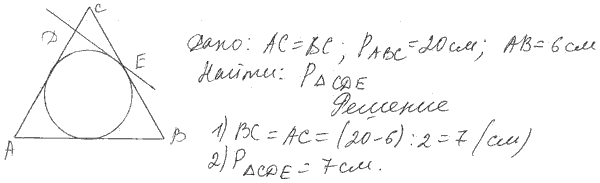 C
D
E
A
B
Дано: AC=BC; P_ABC=20см; AB=6см
Найти: P_△CDE
Решение
1) BC=AC=(20-6):2=7(см)
2) P_△CDE=7см.